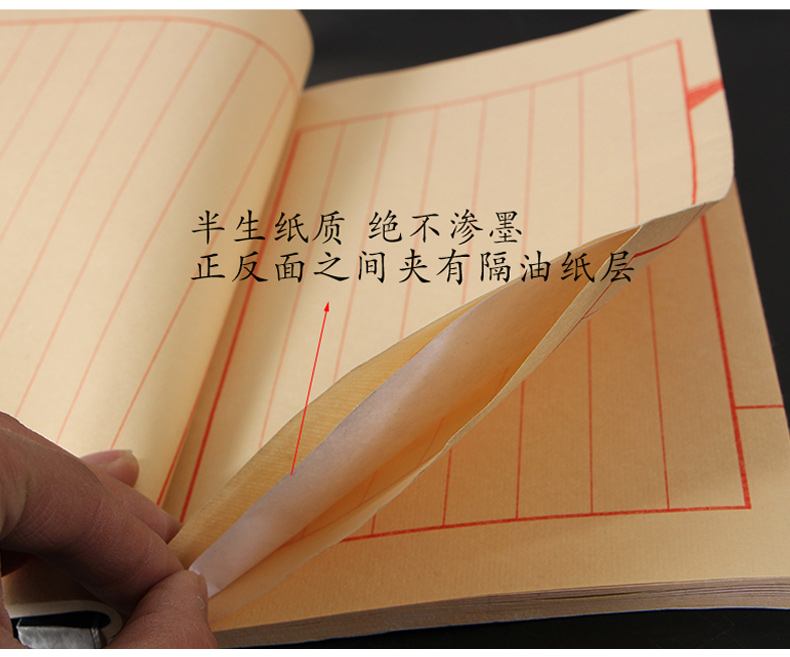 半生纸质 绝不渗墨
正反面之间夹有隔油纸层